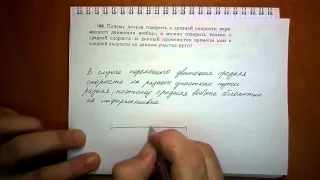 44. Почему нельзя говорить о средней скорости пере-
менного движения вообще, а можно говорить только о
средней скорости за данный промежуток времени или о
средней скорости на данном участке пути?
В случае переменного движения средняя
скорость на разных участках пути
разная, поэтому средняя вообще абсолютно
не информативна